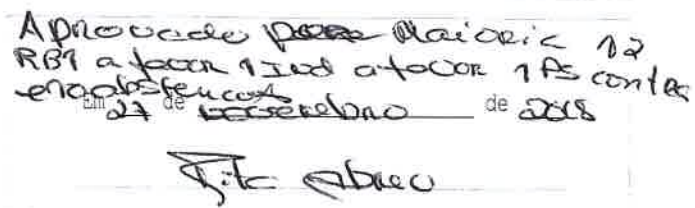 Aprovado por Maioria 12
RB1 a favor 1 Ind a favor 1 PS contra
abstenções
Em 27 de de 2018
Rita Abreu